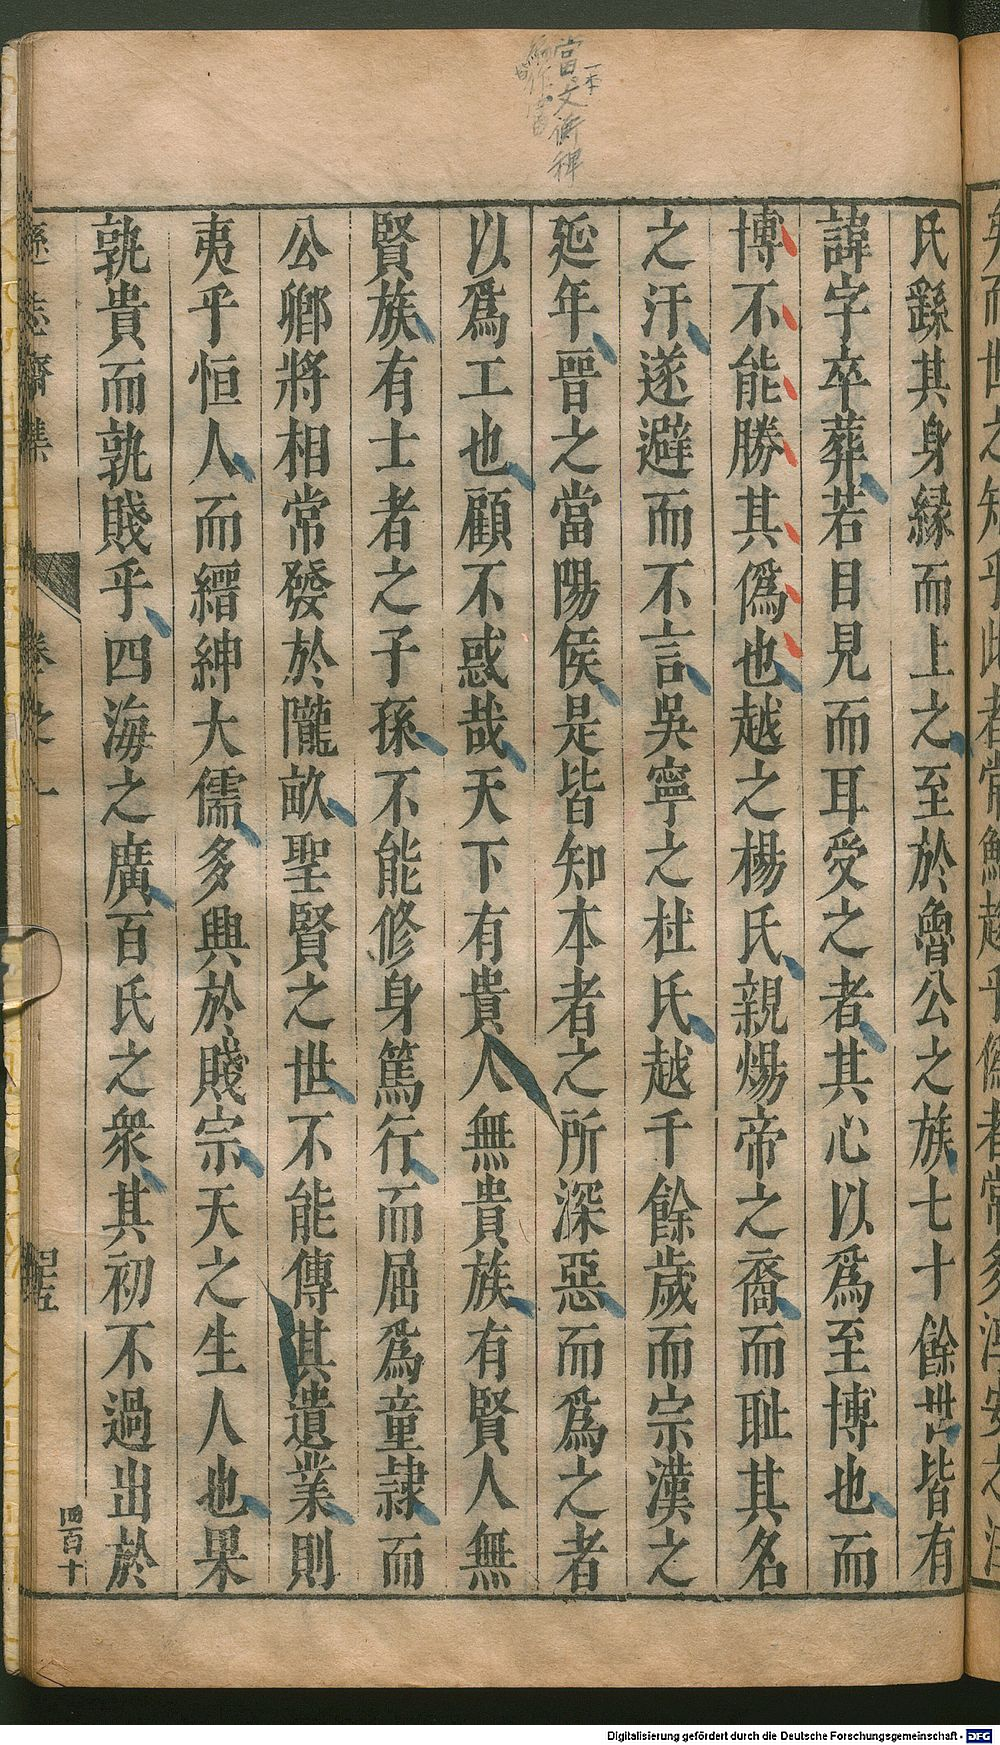 當文衡稗
一本
編作當
氏繇其身緣而上之至於魯公之族七十餘世皆有
諱字卒葬若目見而耳受之者其心以爲至博也而
博不能勝其僞也越之楊氏親煬帝之裔而耻其名
之汙遂避而不言吳寧之杜氏越千餘歲而宗漢之
延年晉之當陽侯是皆知本者之所深惡而爲之者
以爲工也顧不惑哉天下有貴人無貴族有賢人無
賢族有士者之子孫不能修身篤行而屈爲童隷而
公卿將相常發於隴畝聖賢之世不能傳其遺業則
夷乎恒人而縉紳大儒多興於賤宗天之生人也果
孰貴而孰賤乎四海之廣百氏之衆其初不過出於
遜志齋集
卷之一
四百十
Digitalisierung gefördert durch die Deutsche Forschungsgemeinschaft - DFG